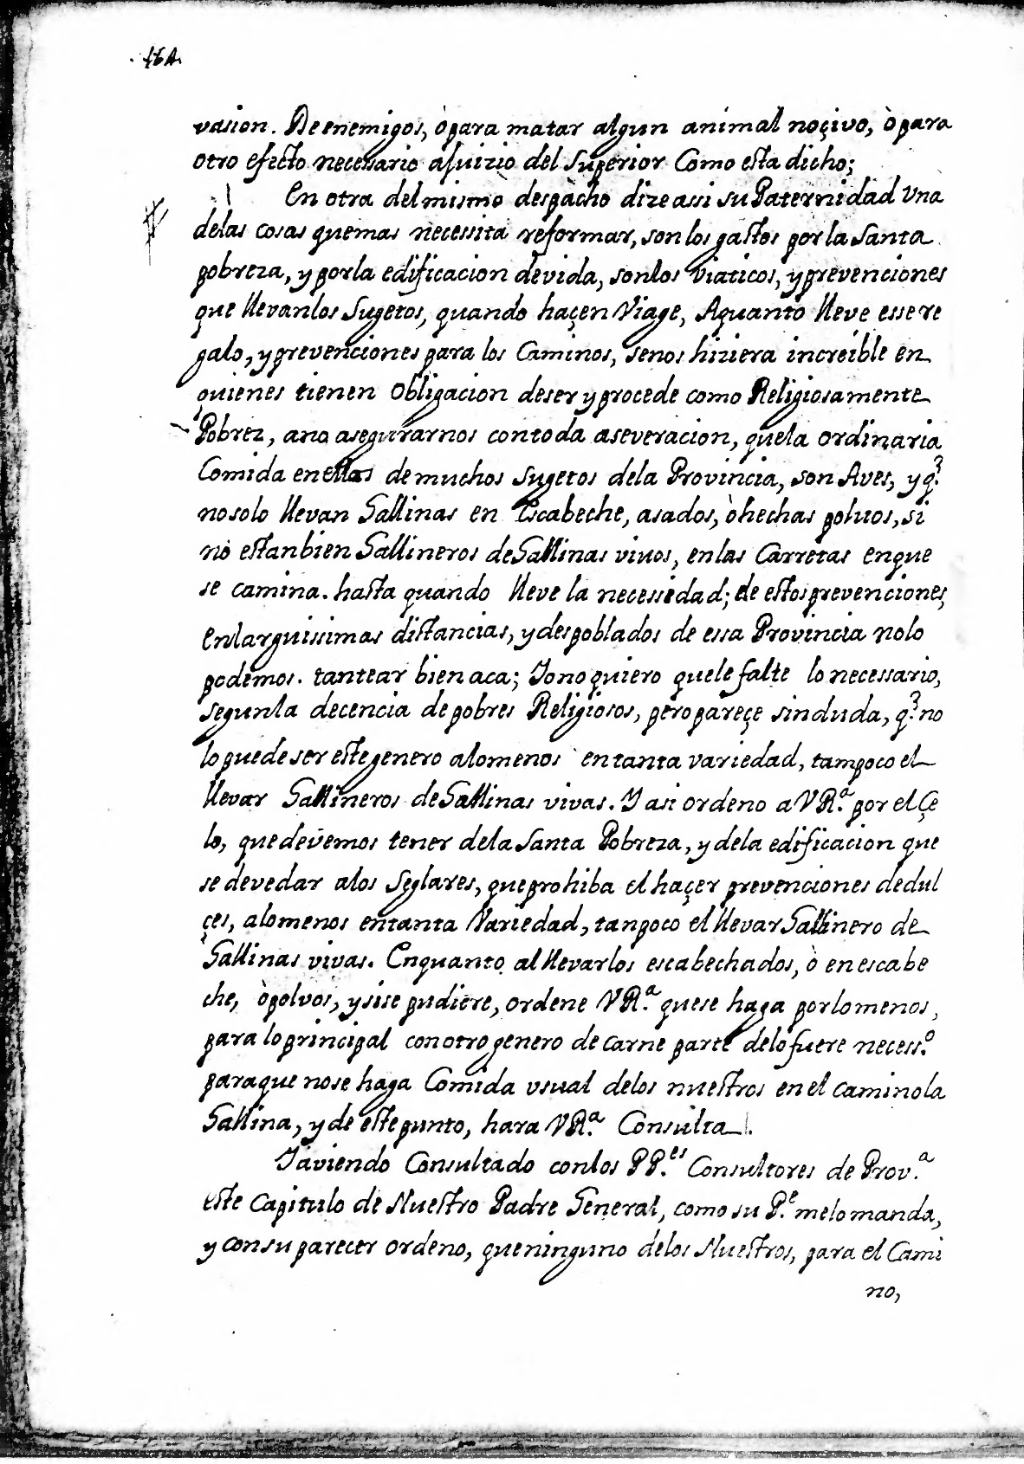 164.
vasion. De enemigos, ò para matar algun animal noçivo, ò para
otro efecto necessario a juizio del Superior Como esta dicho;
En otra del mismo despacho dize assi su Paternidad Una
delas cosas quemas necessita reformar, son los gastos por la Santa
pobreza, y porla edificacion devida, sonlos viaticos, y prevenciones
que llevanlos Sugetos, quando haçen Viage, Aquanto lleve esse re
galo, y prevenciones para los Caminos, senos hiziera increible en
quienes tienen Obligacion deser y procede como Religiosamente
Pobrez, ano asegurarnos contoda aseveracion, quela ordinaria
Comida enellas de muchos Sugetos dela Provincia, son Aves, y q.ᵉ
nosolo llevan Gallinas en Escabeche, asados, ò hechas polvos, si
nò estanbien Gallineros de Gallinas vivos, enlas Carretas enque
se camina. hasta quando lleve la necessidad; de estos prevenciones
enlarguissimas distancias, y despoblados de essa Provincia nolo
podemos. tantear bien aca; Jono quiero quele falte lo necessario,
segunla decencia de pobres Religiosos, pero pareçe sinduda, q.ᵉ no
lo puede ser este genero alomenos entanta variedad, tampoco el
llevar Gallineros de Gallinas vivas. J asi ordeno a VR.ᵃ por el Çe
lo, quedevemos tener dela Santa Pobreza, y dela edificacion que
se devedar alos Seglares, queprohiba el haçer prevenciones dedul
çes, alomenos entanta Variedad, tanpoco el llevar Gallinero de
Gallinas vivas. Enquanto al llevarlos escabechados, ò en escabe
che, ò polvos, y sise pudiere, ordene VR.ᵃ quese haga porlomenos,
para lo principal con otro genero de carne parte delo fuere necess.º
paraque nose haga Comida usual delos nuestros en el caminola
Gallina, y de este punto, hara VR.ᵃ Consulta.
Javiendo Consultado conlos PP.ᵉˢ Consultores de Prov.ᵃ
este Capitulo de Nuestro Padre General, como su P.ᵉ melo manda,
y con su parecer ordeno, queninguno delos Nuestros, para el Cami
no,